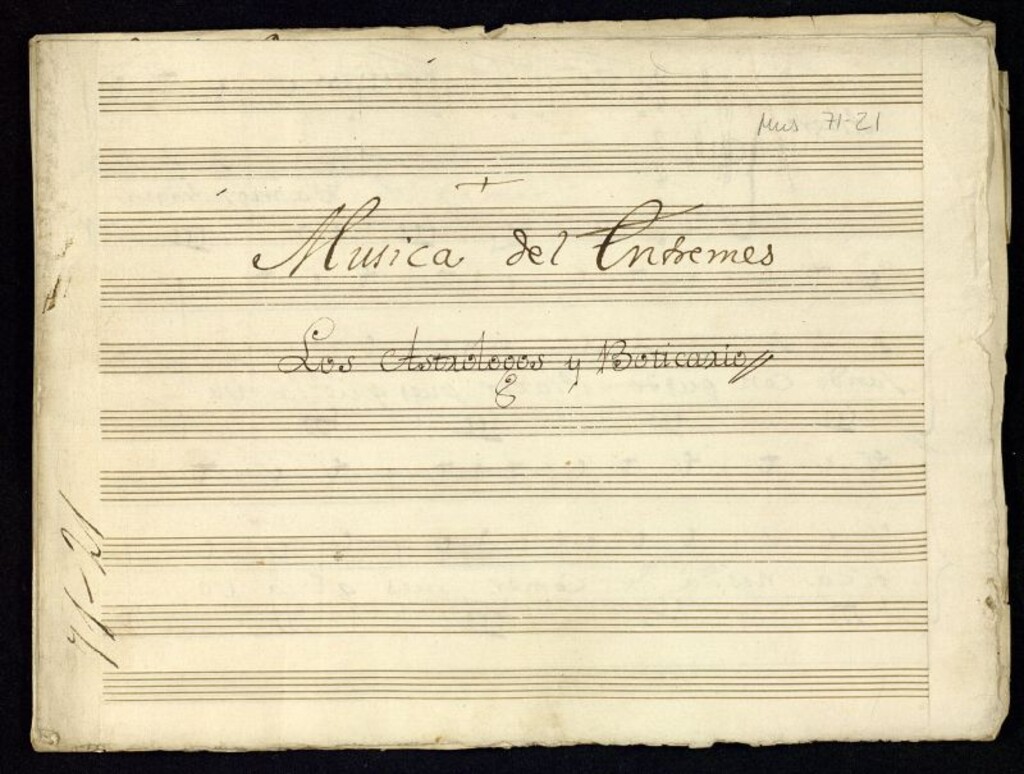 Mus 71-21
Musica del Entremes
Los Astrólogos y Boticario
71-21